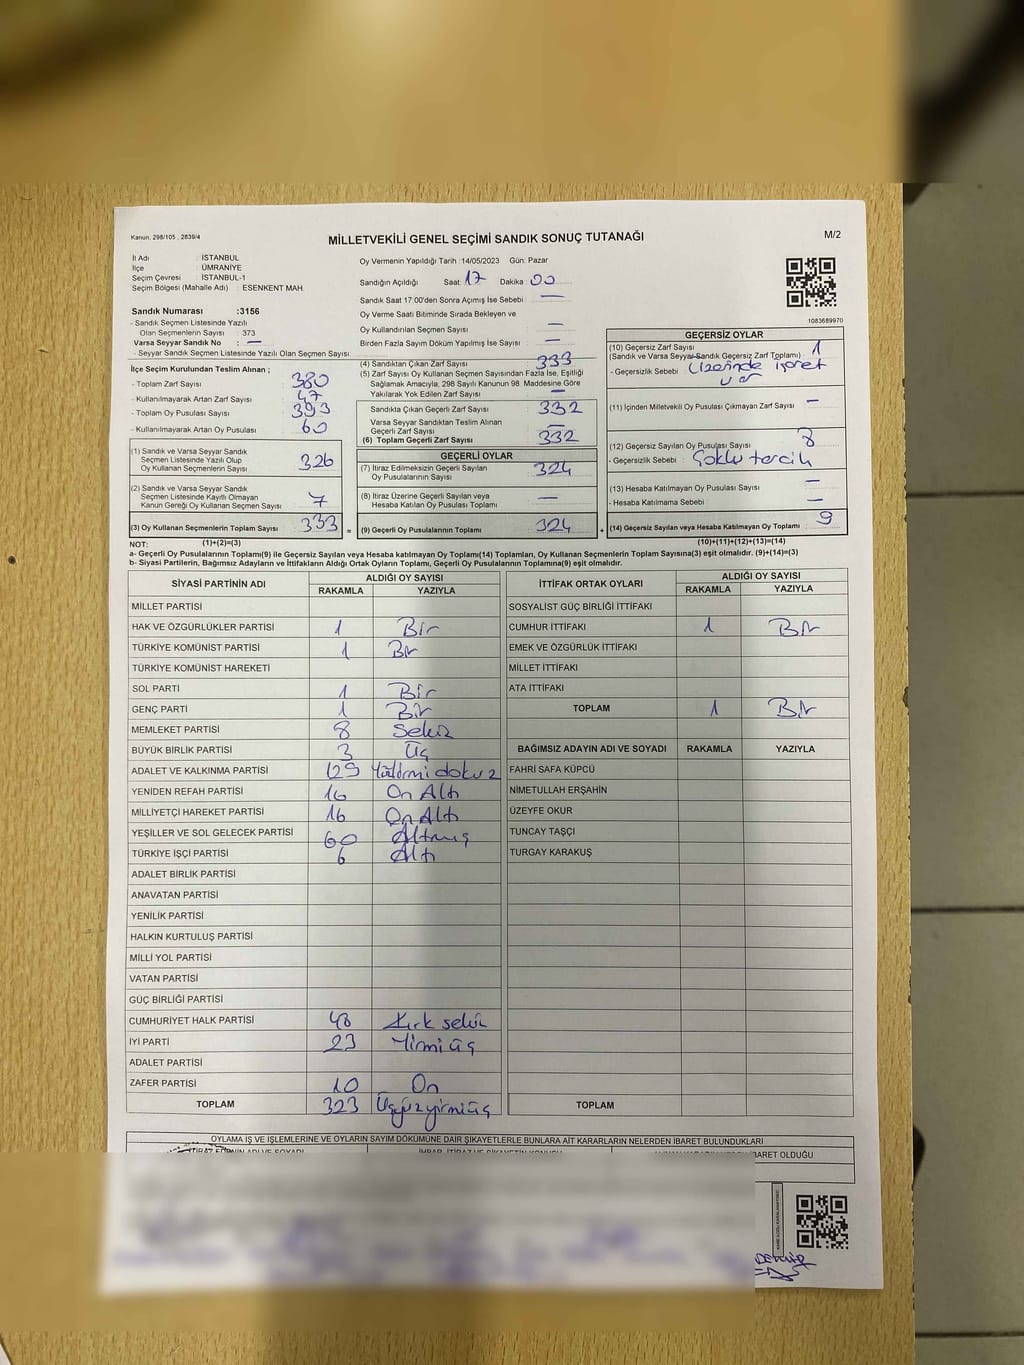 Kanun: 298/105 , 2839/4
MİLLETVEKİLİ GENEL SEÇİMİ SANDIK SONUÇ TUTANAĞI
M/2
İl Adı : İSTANBUL
İlçe : ÜMRANİYE
Seçim Çevresi : İSTANBUL-1
Seçim Bölgesi (Mahalle Adı) : ESENKENT MAH.
Sandık Numarası :3156
- Sandık Seçmen Listesinde Yazılı
Olan Seçmenlerin Sayısı : 373
Varsa Seyyar Sandık No : —
- Seyyar Sandık Seçmen Listesinde Yazılı Olan Seçmen Sayısı
İlçe Seçim Kurulundan Teslim Alınan ;
- Toplam Zarf Sayısı : 380
- Kullanılmayarak Artan Zarf Sayısı : 47
- Toplam Oy Pusulası Sayısı : 393
- Kullanılmayarak Artan Oy Pusulası : 60
(1) Sandık ve Varsa Seyyar Sandık
Seçmen Listesinde Yazılı Olup
Oy Kullanan Seçmenlerin Sayısı 326
(2) Sandık ve Varsa Seyyar Sandık
Seçmen Listesinde Kayıtlı Olmayan
Kanun Gereği Oy Kullanan Seçmen Sayısı 7
(3) Oy Kullanan Seçmenlerin Toplam Sayısı 333
Oy Vermenin Yapıldığı Tarih :14/05/2023 Gün: Pazar
Sandığın Açıldığı Saat: 17 Dakika : 00
Sandık Saat 17.00'den Sonra Açımış İse Sebebi : —
Oy Verme Saati Bitiminde Sırada Bekleyen ve
Oy Kullandırılan Seçmen Sayısı : —
Birden Fazla Sayım Döküm Yapılmış İse Sayısı : —
(4) Sandıktan Çıkan Zarf Sayısı : 333
(5) Zarf Sayısı Oy Kullanan Seçmen Sayısından Fazla İse, Eşitliği
Sağlamak Amacıyla, 298 Sayılı Kanunun 98. Maddesine Göre
Yakılarak Yok Edilen Zarf Sayısı : —
Sandıkla Çıkan Geçerli Zarf Sayısı : 332
Varsa Seyyar Sandıktan Teslim Alınan
Geçerli Zarf Sayısı : —
(6) Toplam Geçerli Zarf Sayısı : 332
GEÇERLİ OYLAR
(7) İtiraz Edilmeksizin Geçerli Sayılan
Oy Pusulalarının Sayısı : 324
(8) İtiraz Üzerine Geçerli Sayılan veya
Hesaba Katılan Oy Pusulası Toplamı : —
= (9) Geçerli Oy Pusulalarının Toplamı : 324
1083689970
GEÇERSİZ OYLAR
(10) Geçersiz Zarf Sayısı : 1
(Sandık ve Varsa Seyyar Sandık Geçersiz Zarf Toplamı)
- Geçersizlik Sebebi : Üzerinde işaret
var
(11) İçinden Milletvekili Oy Pusulası Çıkmayan Zarf Sayısı : —
(12) Geçersiz Sayılan Oy Pusulası Sayısı : 8
- Geçersizlik Sebebi : Çoklu tercih
(13) Hesaba Katılmayan Oy Pusulası Sayısı : —
- Hesaba Katılmama Sebebi : —
+ (14) Geçersiz Sayılan veya Hesaba Katılmayan Oy Toplamı : 9
NOT: (1)+(2)=(3) (10)+(11)+(12)+(13)=(14)
a- Geçerli Oy Pusulalarının Toplamı(9) ile Geçersiz Sayılan veya Hesaba katılmayan Oy Toplamı(14) Toplamları, Oy Kullanan Seçmenlerin Toplam Sayısına(3) eşit olmalıdır. (9)+(14)=(3)
b- Siyasi Partilerin, Bağımsız Adayların ve İttifakların Aldığı Ortak Oyların Toplamı, Geçerli Oy Pusulalarının Toplamına(9) eşit olmalıdır.
SİYASİ PARTİNİN ADI ALDIĞI OY SAYISI
RAKAMLA YAZIYLA
MİLLET PARTİSİ
HAK VE ÖZGÜRLÜKLER PARTİSİ 1 Bir
TÜRKİYE KOMÜNİST PARTİSİ 1 Bir
TÜRKİYE KOMÜNİST HAREKETİ
SOL PARTİ 1 Bir
GENÇ PARTİ 1 Bir
MEMLEKET PARTİSİ 8 Sekiz
BÜYÜK BİRLİK PARTİSİ 3 Üç
ADALET VE KALKINMA PARTİSİ 129 dokuz
YENİDEN REFAH PARTİSİ 16 On Altı
MİLLİYETÇİ HAREKET PARTİSİ 16 On Altı
YEŞİLLER VE SOL GELECEK PARTİSİ 60 Altmış
TÜRKİYE İŞÇİ PARTİSİ 6 Altı
ADALET BİRLİK PARTİSİ
ANAVATAN PARTİSİ
YENİLİK PARTİSİ
HALKIN KURTULUŞ PARTİSİ
MİLLİ YOL PARTİSİ
VATAN PARTİSİ
GÜÇ BİRLİĞİ PARTİSİ
CUMHURİYET HALK PARTİSİ 48 Kırk sekiz
İYİ PARTİ 23 Yirmi üç
ADALET PARTİSİ
ZAFER PARTİSİ 10 On
TOPLAM 323 Üçyüzyirmiüç
İTTİFAK ORTAK OYLARI ALDIĞI OY SAYISI
RAKAMLA YAZIYLA
SOSYALİST GÜÇ BİRLİĞİ İTTİFAKI
CUMHUR İTTİFAKI 1 Bir
EMEK VE ÖZGÜRLÜK İTTİFAKI
MİLLET İTTİFAKI
ATA İTTİFAKI
TOPLAM 1 Bir
BAĞIMSIZ ADAYIN ADI VE SOYADI RAKAMLA YAZIYLA
FAHRİ SAFA KÜPCÜ
NİMETULLAH ERŞAHİN
ÜZEYFE OKUR
TUNCAY TAŞÇI
TURGAY KARAKUŞ
TOPLAM
OYLAMA İŞ VE İŞLEMLERİNE VE OYLARIN SAYIM DÖKÜMÜNE DAİR ŞİKAYETLERLE BUNLARA AİT KARARLARIN NELERDEN İBARET BULUNDUKLARI
İBARET OLDUĞU